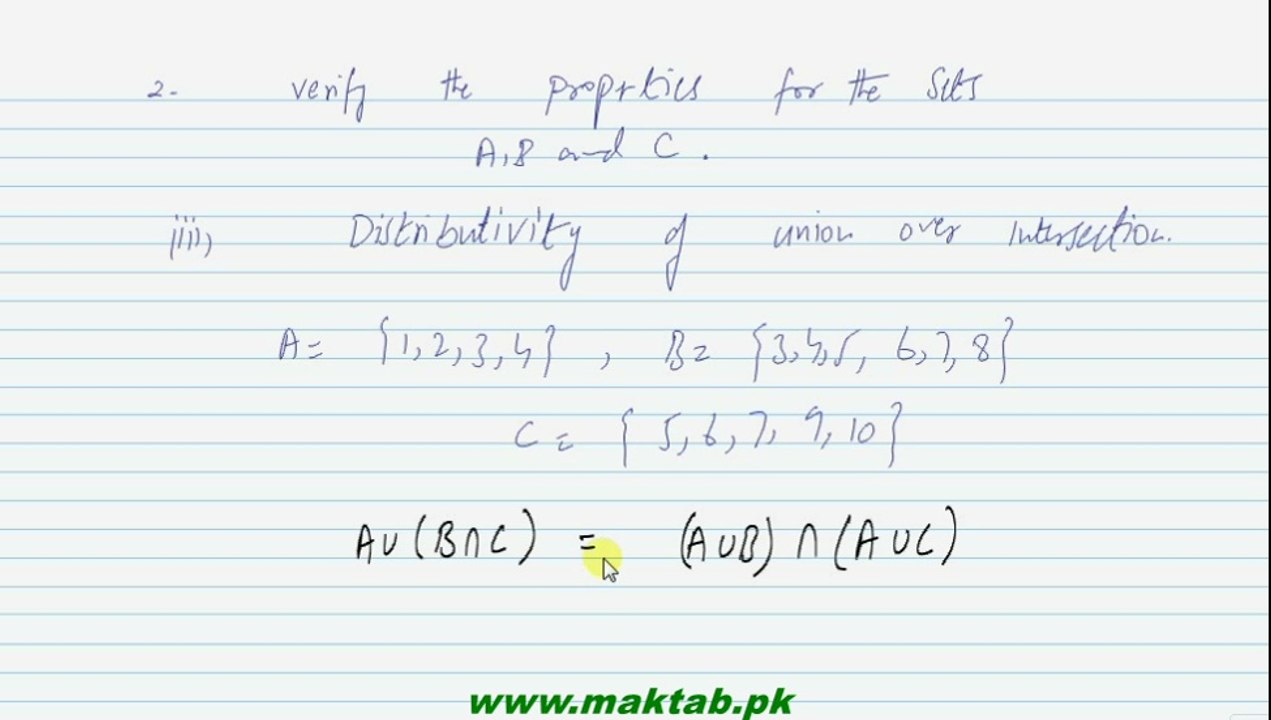 2- verify the proprties for the sets
A, B and C.
(iii) Distributivity of union over Intersection.
A = {1, 2, 3, 4} , B = {3, 4, 5, 6, 7, 8}
C = { 5, 6, 7, 9, 10 }
A∪(B∩C) = (A∪B) ∩ (A∪C)
www.maktab.pk